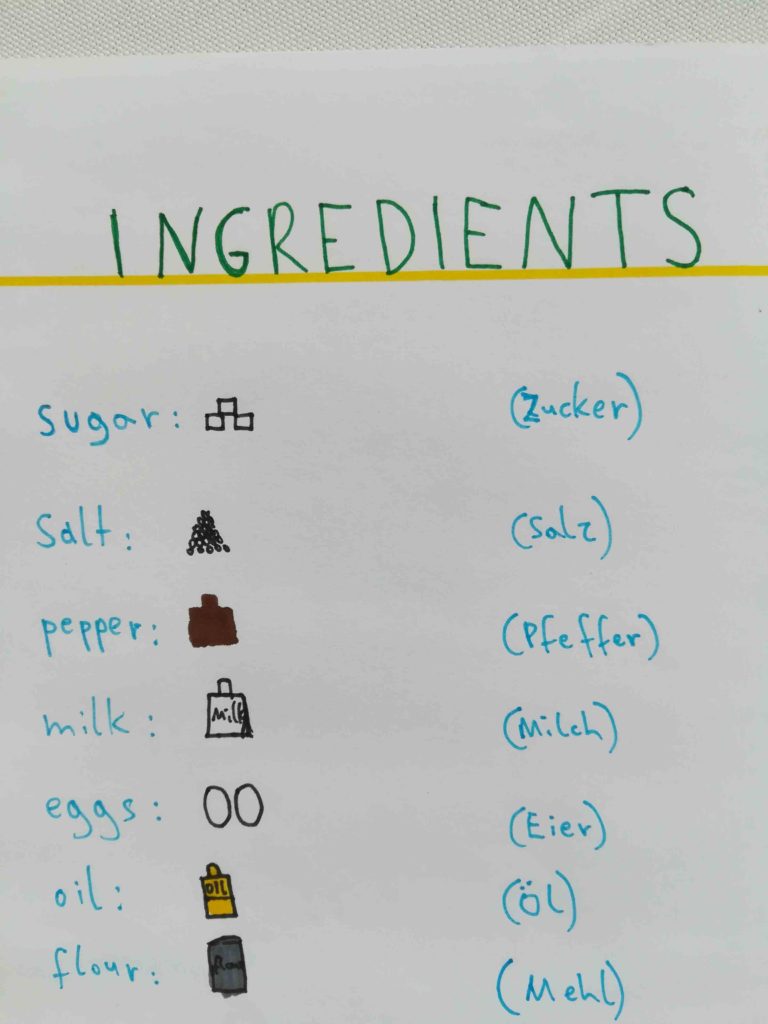 INGREDIENTS
sugar: (Zucker)
Salt: (Salz)
pepper: (Pfeffer)
milk: Milk (Milch)
eggs: (Eier)
oil: OIL (Öl)
flour: (Mehl)